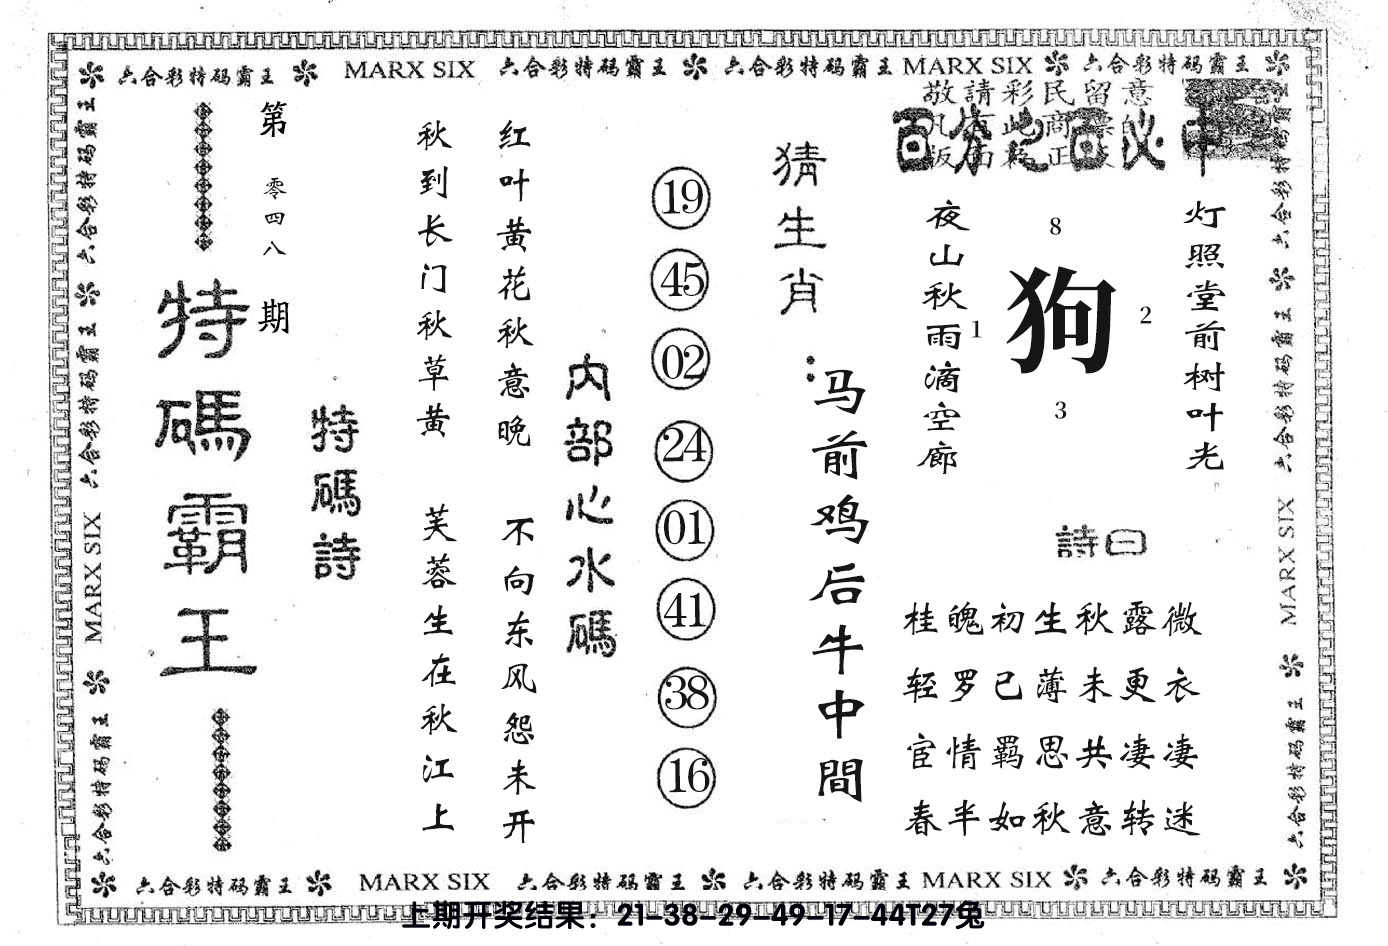 六合彩特码霸王 MARX SIX 六合彩特码霸王 六合彩特码霸王 MARX SIX 六合彩特码霸王
六合彩特码霸王 六合彩特码霸王 MARX SIX 六合彩特码霸王
第零四八期
特碼霸王
特碼詩
秋到长门秋草黄
芙蓉生在秋江上
红叶黄花秋意晚
不向东风怨未开
内部心水碼
19
45
02
24
01
41
38
16
猜生肖:
马前鸡后牛中間
敬請彩民留意
百分之百必中
夜山秋雨滴空廊
8
1
狗
2
3
灯照堂前树叶光
詩曰
桂魄初生秋露微
轻罗已薄未更衣
宦情羁思共凄凄
春半如秋意转迷
六合彩特码霸王 六合彩特码霸王 MARX SIX 六合彩特码霸王
六合彩特码霸王 MARX SIX 六合彩特码霸王 六合彩特码霸王 MARX SIX 六合彩特码霸王
上期开奖结果：21-38-29-49-17-44T27兔